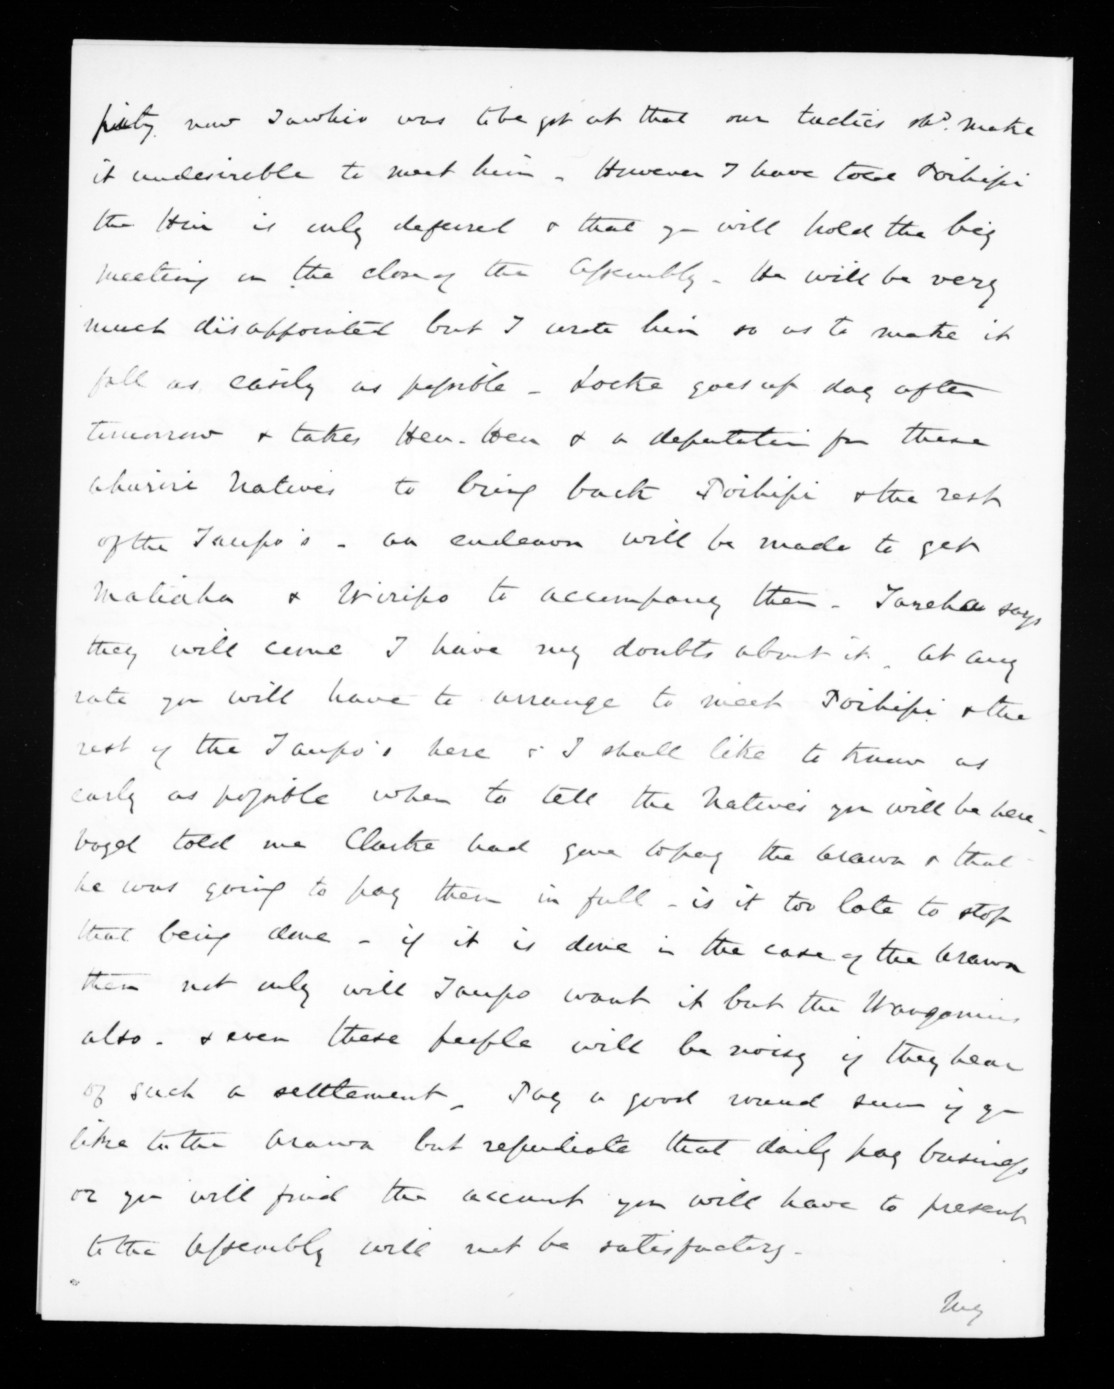 pity now Tawhio was to be got at that our tactics shd. make
it undesirable to meet him - However I have told Poihipi
the Hui is only deferred & that yu will hold the big
meeting on the close of the Assembly - He will be very
much disappointed but I wrote him so as to make it
fall as easily as possible - Locke goes up day after
tomorrow & takes Hen-Hen & a deputation fm these
Ahuriri Natives to bring back Poihipi & the rest
of the Taupo's - an endeavor will be made to get
Matiaha & Wiripo to accompany them - Tareha says
they will come I have my doubts about it. at any
rate yu will have to arrange to meet Poihipi & the
rest of the Taupo's here & I shall like to know as
early as possible when to tell the Natives you will be here -
Vogel told me Clarke had gone to pay the Arawa & that
he was going to pay them in full - is it too late to stop
that being done - if it is done in the case of the Arawa
then not only will Taupo want it but the Wanganuis
also - & even these people will be noisy if they hear
of such a settlement - Pay a good round sum if yu
like to the Arawa but repudiate that daily pay business
or yu will find the account you will have to present
to the Assembly will not be satisfactory -
My